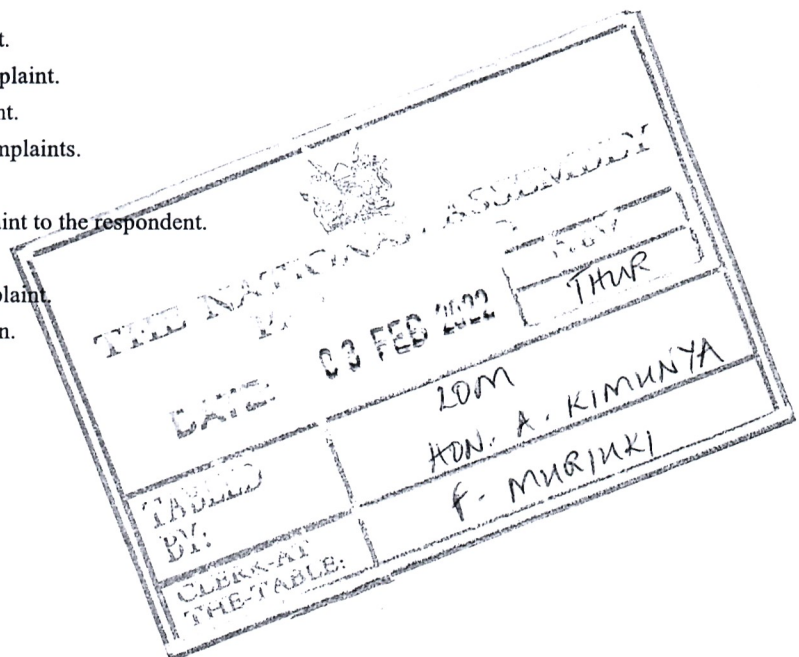 t.
plaint.
nt.
nplaints.
int to the respondent.
plaint.
n.
THE NATIONAL ASSEMBLY
DATE: 03 FEB 2022
DAY
THUR
TABLED
BY:
LOM
HON. A. KIMUNYA
CLERK-AT
THE-TABLE:
F. MURIUKI